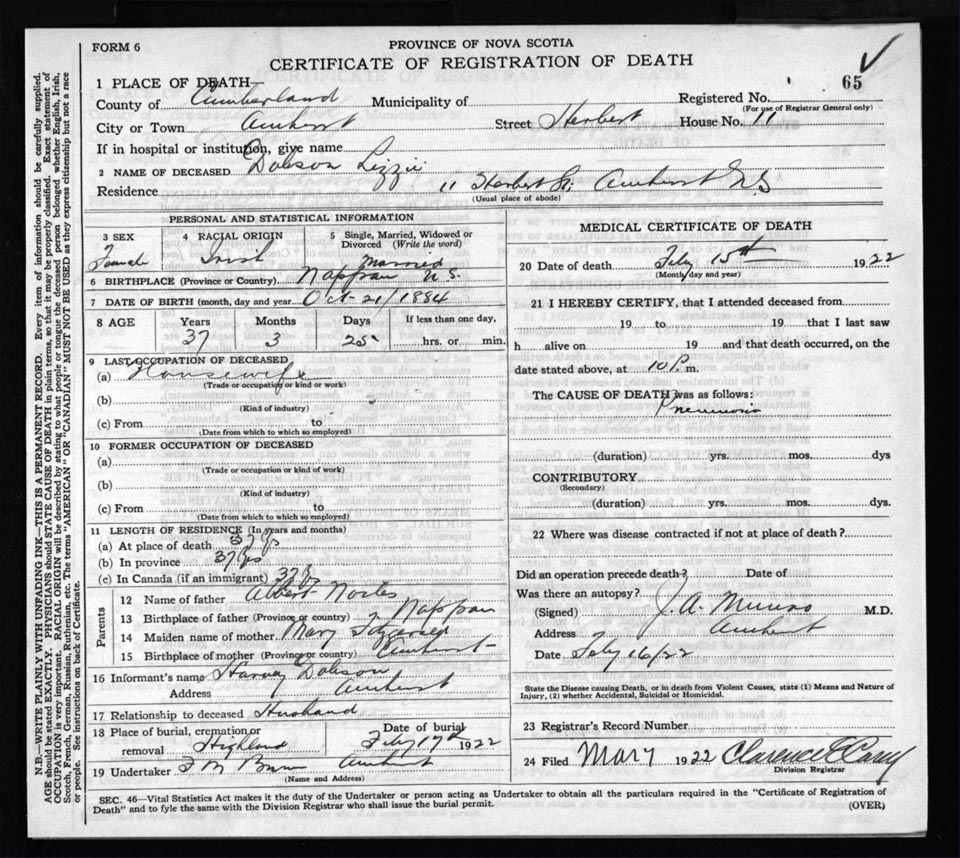 FORM 6
PROVINCE OF NOVA SCOTIA
CERTIFICATE OF REGISTRATION OF DEATH
65
1 PLACE OF DEATH—
County of Cumberland Municipality of Registered No.
(For use of Registrar General only)
City or Town Amherst Street Herbert House No. 11
If in hospital or institution, give name
2 NAME OF DECEASED Dobson Lizzie
Residence 11 Herbert St. Amherst N.S
(Usual place of abode)
PERSONAL AND STATISTICAL INFORMATION
3 SEX 4 RACIAL ORIGIN 5 Single, Married, Widowed or Divorced (Write the word)
Female Irish Married
6 BIRTHPLACE (Province or Country) Nappan N.S.
7 DATE OF BIRTH (month, day and year) Oct-21/1884
8 AGE Years Months Days If less than one day,
37 3 25 hrs. or min.
9 LAST OCCUPATION OF DECEASED
(a) Housewife
(Trade or occupation or kind or work)
(b)
(Kind of industry)
(c) From to
(Date from which to which so employed)
10 FORMER OCCUPATION OF DECEASED
(a)
(Trade or occupation or kind of work)
(b)
(Kind of industry)
(c) From to
(Date from which to which so employed)
11 LENGTH OF RESIDENCE (In years and months)
(a) At place of death 37 yrs
(b) In province 37 yrs
(c) In Canada (if an immigrant) 37 yrs
Parents
12 Name of father Albert
13 Birthplace of father (Province or country) Nappan
14 Maiden name of mother Mary
15 Birthplace of mother (Province or country) Amherst
16 Informant's name Harvey Dobson
Address Amherst
17 Relationship to deceased Husband
18 Place of burial, cremation or removal Highland Date of burial Feby 17th 1922
19 Undertaker Amherst
(Name and Address)
MEDICAL CERTIFICATE OF DEATH
20 Date of death Feby 15th 1922
(Month, day and year)
21 I HEREBY CERTIFY, that I attended deceased from
19 to 19 that I last saw
h alive on 19 and that death occurred, on the
date stated above, at 10 P. m.
The CAUSE OF DEATH was as follows:
Pneumonia
(duration) yrs. mos. dys
CONTRIBUTORY
(Secondary)
(duration) yrs. mos. dys.
22 Where was disease contracted if not at place of death?
Did an operation precede death? Date of
Was there an autopsy?
(Signed) J. A. Munro M.D.
Address Amherst
Date Feby 16/22
State the Disease causing Death, or in death from Violent Causes, state (1) Means and Nature of Injury, (2) whether Accidental, Suicidal or Homicidal.
23 Registrar's Record Number
24 Filed Mar 7 1922 Clarence
Division Registrar
SEC. 46—Vital Statistics Act makes it the duty of the Undertaker or person acting as Undertaker to obtain all the particulars required in the "Certificate of Registration of
Death" and to fyle the same with the Division Registrar who shall issue the burial permit. (OVER)
N.B.—WRITE PLAINLY WITH UNFADING INK—THIS IS A PERMANENT RECORD. Every item of information should be carefully supplied.
AGE should be stated EXACTLY. PHYSICIANS should STATE CAUSE OF DEATH in plain terms, so that it may be properly classified. Exact statement of
OCCUPATION is very important. RACIAL ORIGIN will be described by stating to what people or tongue the deceased person belonged whether English, Irish,
Scotch, French, German, Russian, Ruthenian, etc. The terms "AMERICAN" OR "CANADIAN" MUST NOT BE USED as they express citizenship but not a race
or people. See instructions on back of Certificate.